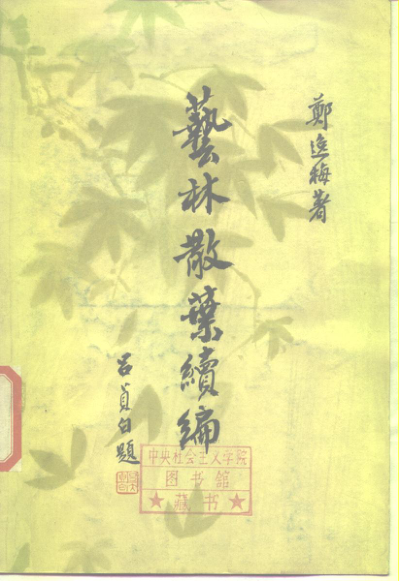 鄭逸梅著
藝林散葉續編
呂貞白題
中央社会主义学院
图书馆
★藏书★